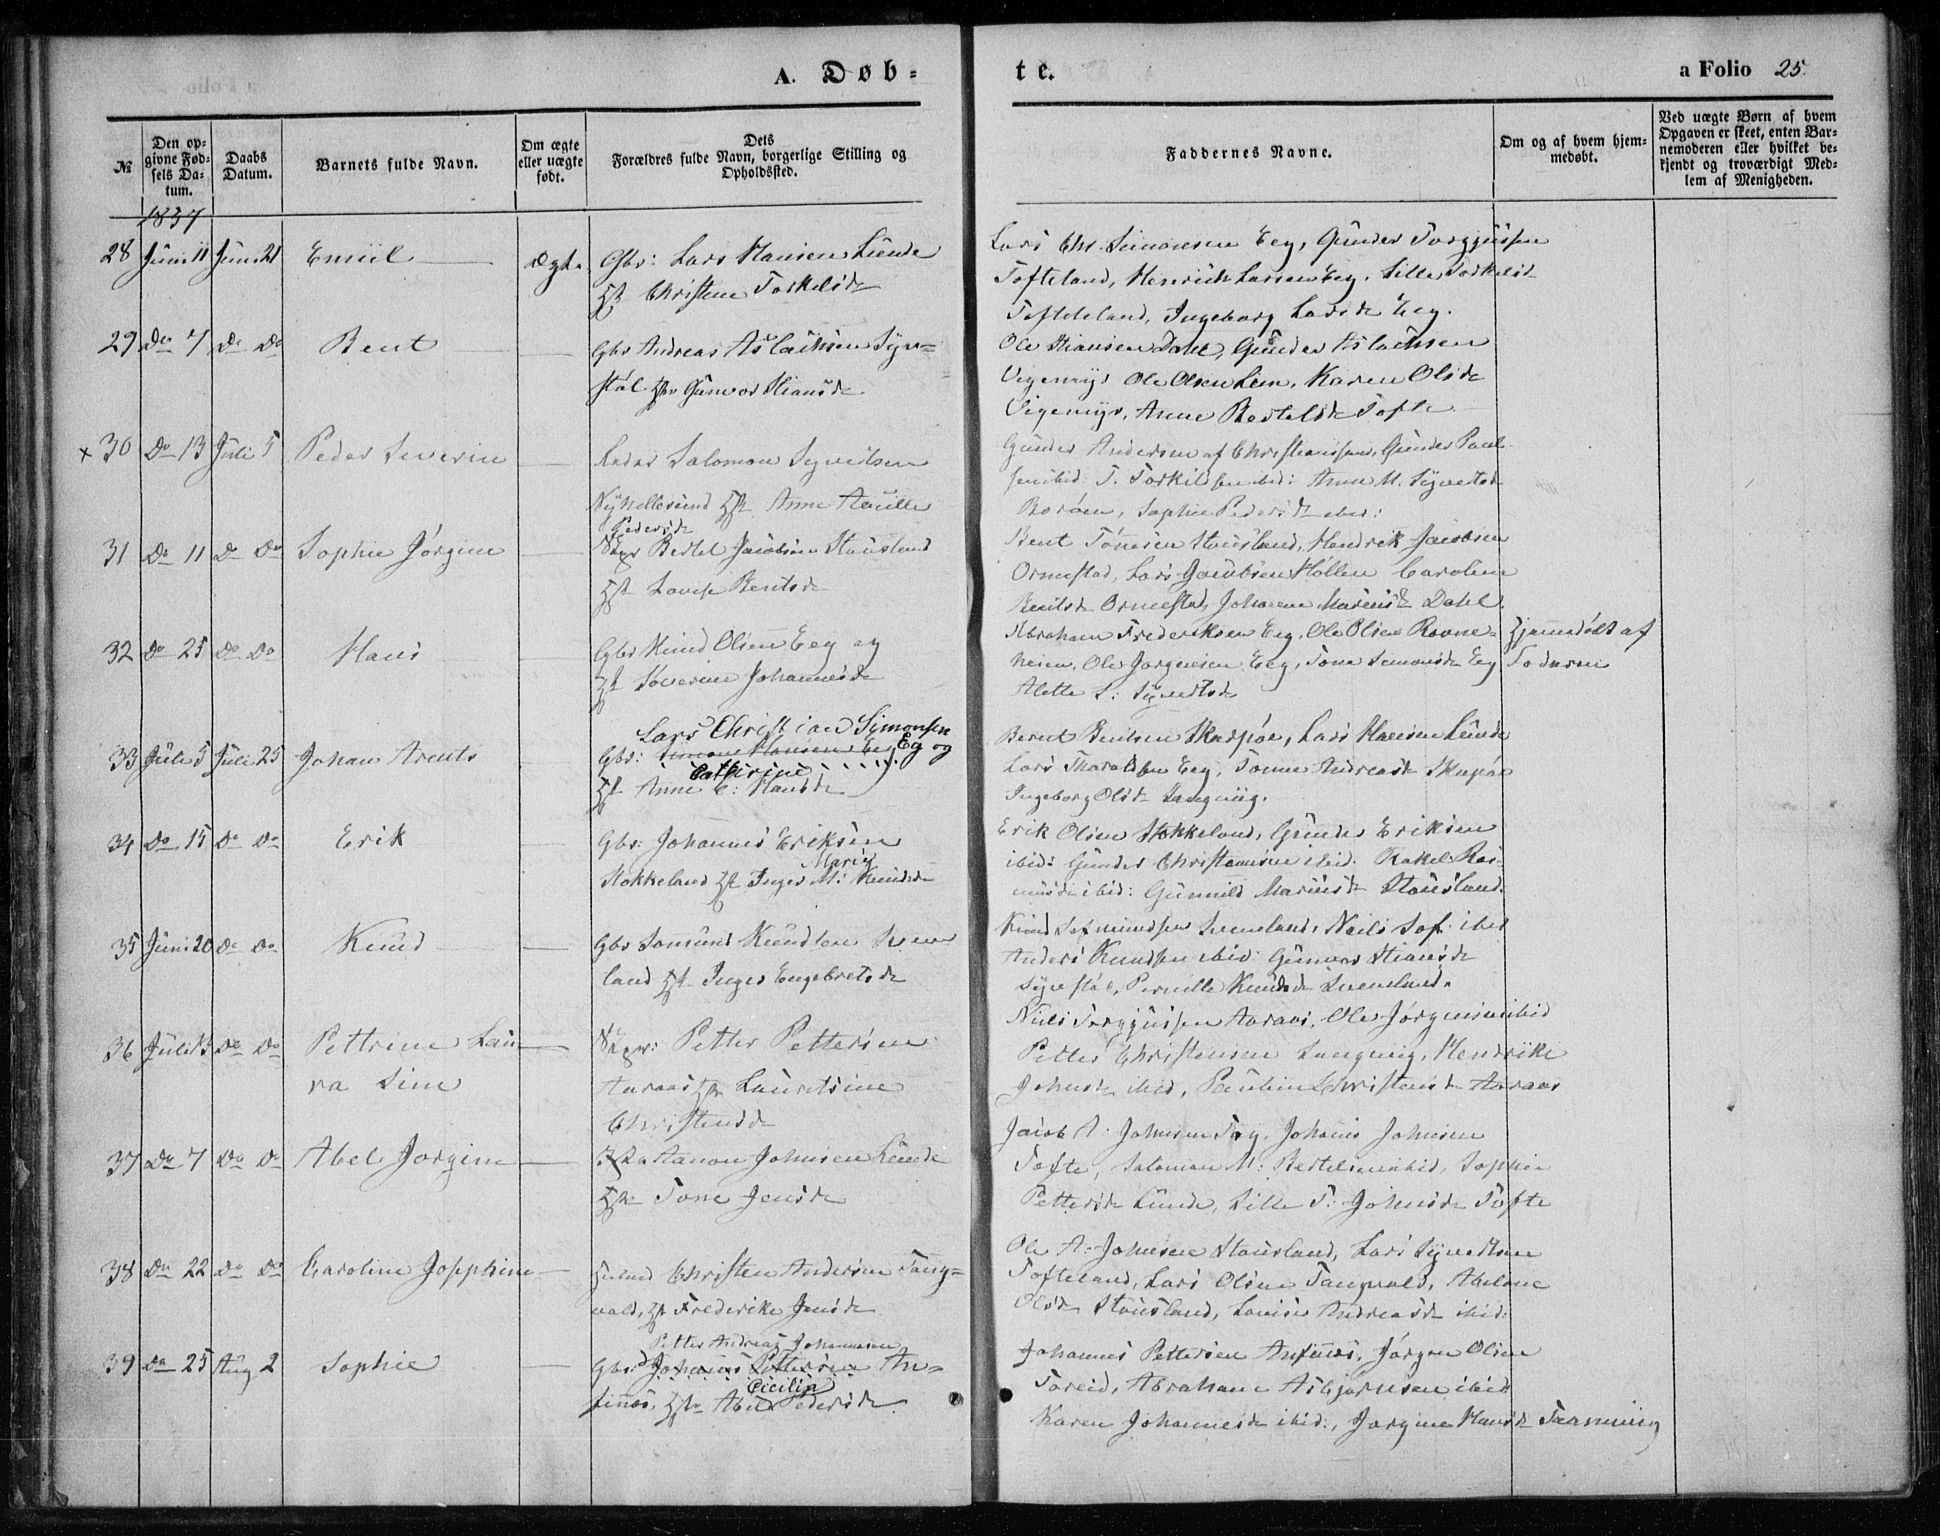 A. Døb=
te.
a Folio 25.
№
Den op-
givne Fød-
sels Da-
tum.
Daabs
Datum.
Barnets fulde Navn.
Om ægte
eller uægte
født.
Dets
Forældres fulde Navn, borgerlige Stilling og
Opholdssted.
Faddernes Navne.
Om og af hvem hjem-
medøbt.
Ved uægte Børn af hvem
Opgaven er skeet, enten Bar-
nemoderen eller hvilket be-
kjendt og troværdigt Med-
lem af Menigheden.
1837
28 Juni 11 Juni 21 Emiil ægt. Gbr: Lars Hansen Lunde
Hst Christine Torkelsd
Lars Chr. Simonsen Eeg, Gunder Torgjussen
Tofteland, Henrich Larsen Eeg. Sille Torkelsd
Tofteland, Ingeborg Larsd Eeg.
29 Do 7 Do Do Bent Gbr Andreas Aslachsen Syre=
støl Hst Gunvor Stiansd
Ole Stiansen Dahl, Gunder Aslachsen
Vigemyr Ole Olsen Lem, Karen Olsd
Vigemyr, Anne Bertelsd Tofte
× 30 Do 13 Juli 5 Peder Severin Salomon Syvertsen
Nyhellesund Hst Anne
Pedersd
Gunder Andersen af Christianssand, Gunder Paul
sen ibid: T. Torkildsen ibid: Anne M. Syvertsd
Borøen, Sophie Pedersd ibid:
31 Do 11 Do Do Sophie Jørgine Bertel Jacobsen Stousland
Hst Lovise Bentsd
Bent Tønesen Stousland, Hendrik Jacobsen
Ormestad, Lars Jacobsen Høllen Caroline
Bentsd Ormestad, Johanne Mariusd Dahl.
32 Do 25 Do Do Hans Gbr Knud Olsen Eeg og
Hst Severine Johannesd
Abraham Frederiksen Eeg, Ole Olsen Rovne=
heien, Ole Jørgensen Eeg, Tone Simonsd Eeg
Alette S: Syvertsd
Hjemmedøbt af
33 Juli 5 Juli 25 Johan Arents Lars Christian Simonsen
Gbr: Eg og
Cathrine
Hst Anne C: Hansd
Berent Bentsen Skarpøe, Lars Hansen Lunde
Lars Tharaldsen Eeg, Tonne Andreasd Skarpøe
Ingeborg Olsd Langviig.
34 Do 15 Do Do Erik Gbr: Johannes Eriksen
Marie
Stokkeland Hst Inger M: Knudsd
Erik Olsen Stokkeland, Gunder Eriksen
ibid: Gunder Christensen ibid. Rakel Ras
musd ibid: Gunnild Mariusd Stousland.
35 Juni 20 Do Do Knud Gbr Knudsen
land Hst Inger Engebretsd
Anders Knudsen ibid: Gunvor Stiansd
Syrestøl, Pernille Knudsd
36 Juli 13 Do Do Pettrine Lau
ra Sine
Petter Pettersen
Aaraas Hst Lauretsine
Christensd
Niels Torgjussen Aaraas, Ole Jørgensen ibid
Petter Christensen Langviig, Hendrikke
Johnsd ibid, Pauline Christensd Aaraas
37 Do 7 Do Do Abel Jørgine Aanon Johnsen Lunde
Hst Tone Jensd
Jacob A: Johnsen Johanes Johnsen
Tofte, Salomon M: Bertelsen ibid, Sophie
Pettersd Lunde, Sille T: Johnsd Tofte
38 Do 22 Do Do Caroline Josephine Christen Andersen Tang=
vald, Hst Frederike Jensd
Ole A: Johnsen Stousland, Lars Syvertsen
Tofteland, Lars Olsen Tangvald, Abelone
Olsd Stousland, Lovise Andreasd ibid:
39 Do 25 Aug 2 Sophie Petter Andreas Johannesen
Gbr: Johanes Pettersen An=
Cecilia
finnæs, Hst Abel Pedersd
Johannes Pettersen Anfinnæs, Jørgen Olsen
Toreid, Abraham Asbjørnsen ibid
Karen Johannesd ibid:, Jørgine Hansd